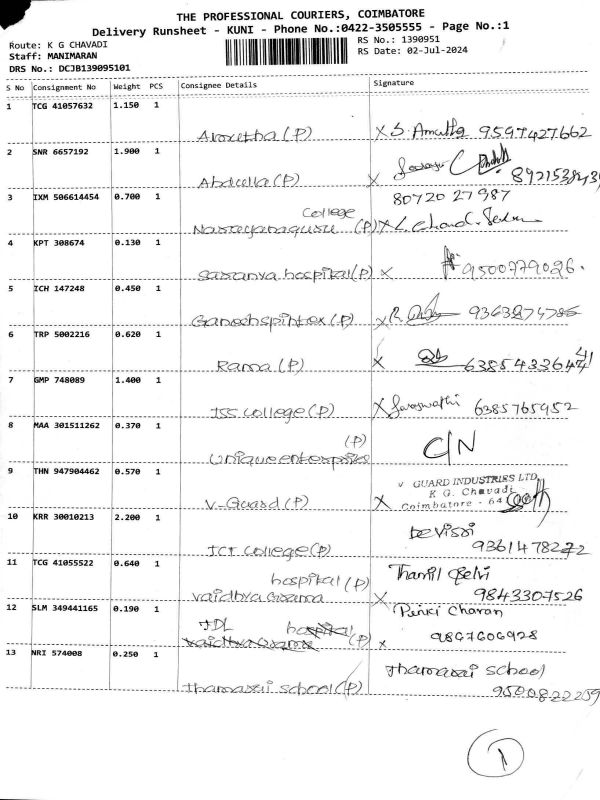 THE PROFESSIONAL COURIERS, COIMBATORE
Delivery Runsheet - KUNI - Phone No.:0422-3505555 - Page No.:1
Route: K G CHAVADI
Staff: MANIMARAN
DRS No.: DCJB139095101
RS No.: 1390951
RS Date: 02-Jul-2024
S No Consignment No Weight PCS Consignee Details Signature
1 TCG 41057632 1.150 1
(P) X S. Amutha 9597427662
2 SNR 6657192 1.900 1
Abdulla (P) X
3 IXM 506614454 0.700 1
8072027987
College
Narayanaguru (P) X L. Chand
4 KPT 308674 0.130 1
Saranya hospital (P) X 9500779026.
5 ICH 147248 0.450 1
(P) X R. 9363874785
6 TRP 5002216 0.620 1
Rama (P) X
7 GMP 748089 1.400 1
JSS College (P) X Saraswathi 6385765952
8 MAA 301511262 0.370 1
(P) C/N
Unique enterprises
9 THN 947904462 0.570 1
V GUARD INDUSTRIES LTD
K G. Chavadi
V-Guard (P) X Coimbatore - 641
10 KRR 30010213 2.200 1
JCT College (P) 9361478272
11 TCG 41055522 0.640 1
hospital (P) Thamil Selvi
Vaidhyagrama X 9843307526
12 SLM 349441165 0.190 1
JDL (P) X Charan
9847606928
13 NRI 574008 0.250 1
Thamarai School
Thamarai School (P) 9500822259
1